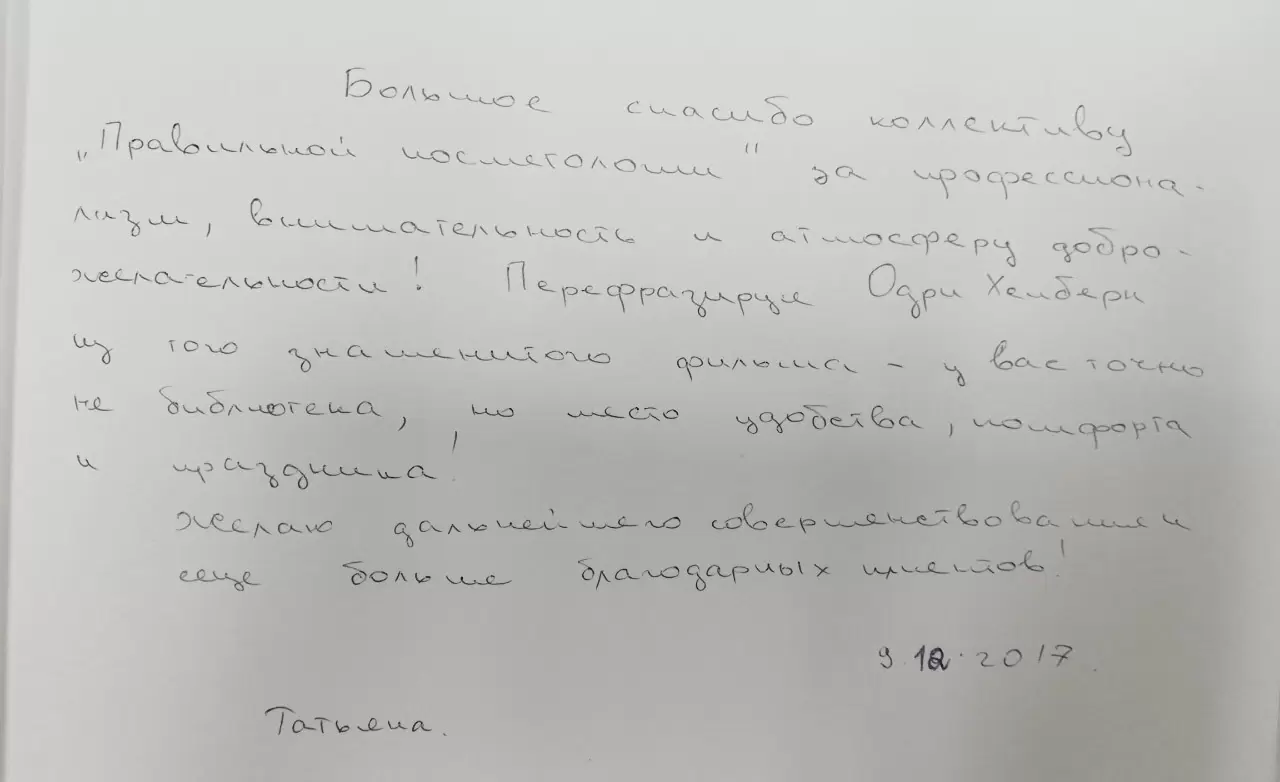 Большое спасибо коллективу
„Правильной косметологии" за профессиона-
лизм, внимательность и атмосферу добро-
желательности! Перефразируя Одри Хепберн
из того знаменитого фильма - у вас точно
не библиотека, но место удобства, комфорта
и праздника!
Желаю дальнейшего совершенствования и
еще больше благодарных клиентов!
9.12.2017.
Татьяна.